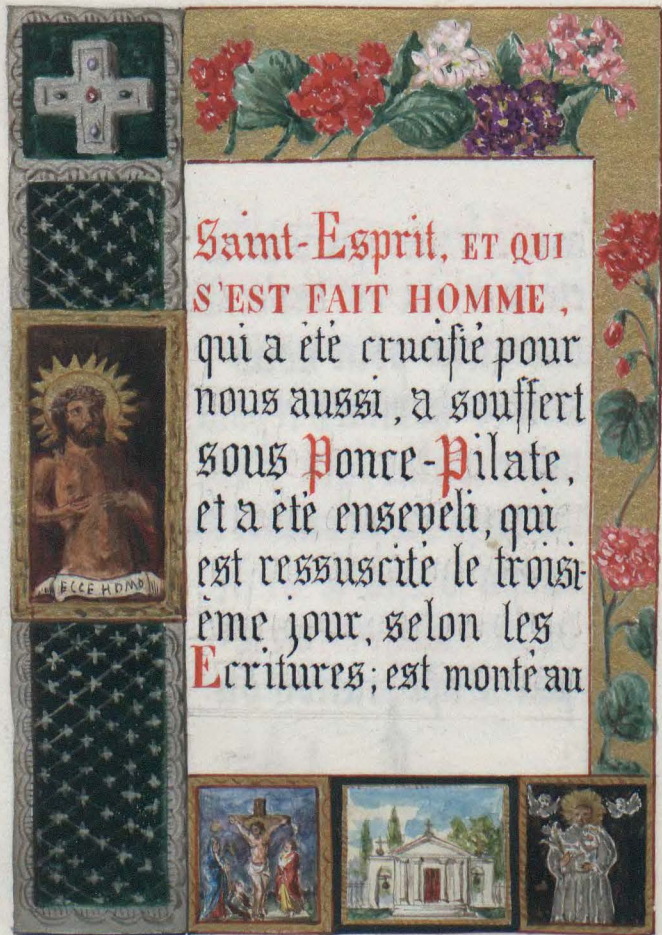 Saint-Esprit, ET QUI
S'EST FAIT HOMME,
qui a été crucifié pour
nous aussi, a souffert
sous Ponce-Pilate,
et a été enseveli, qui
est ressuscité le troisi-
ème jour, selon les
Ecritures; est monté au
ECCE HOMO